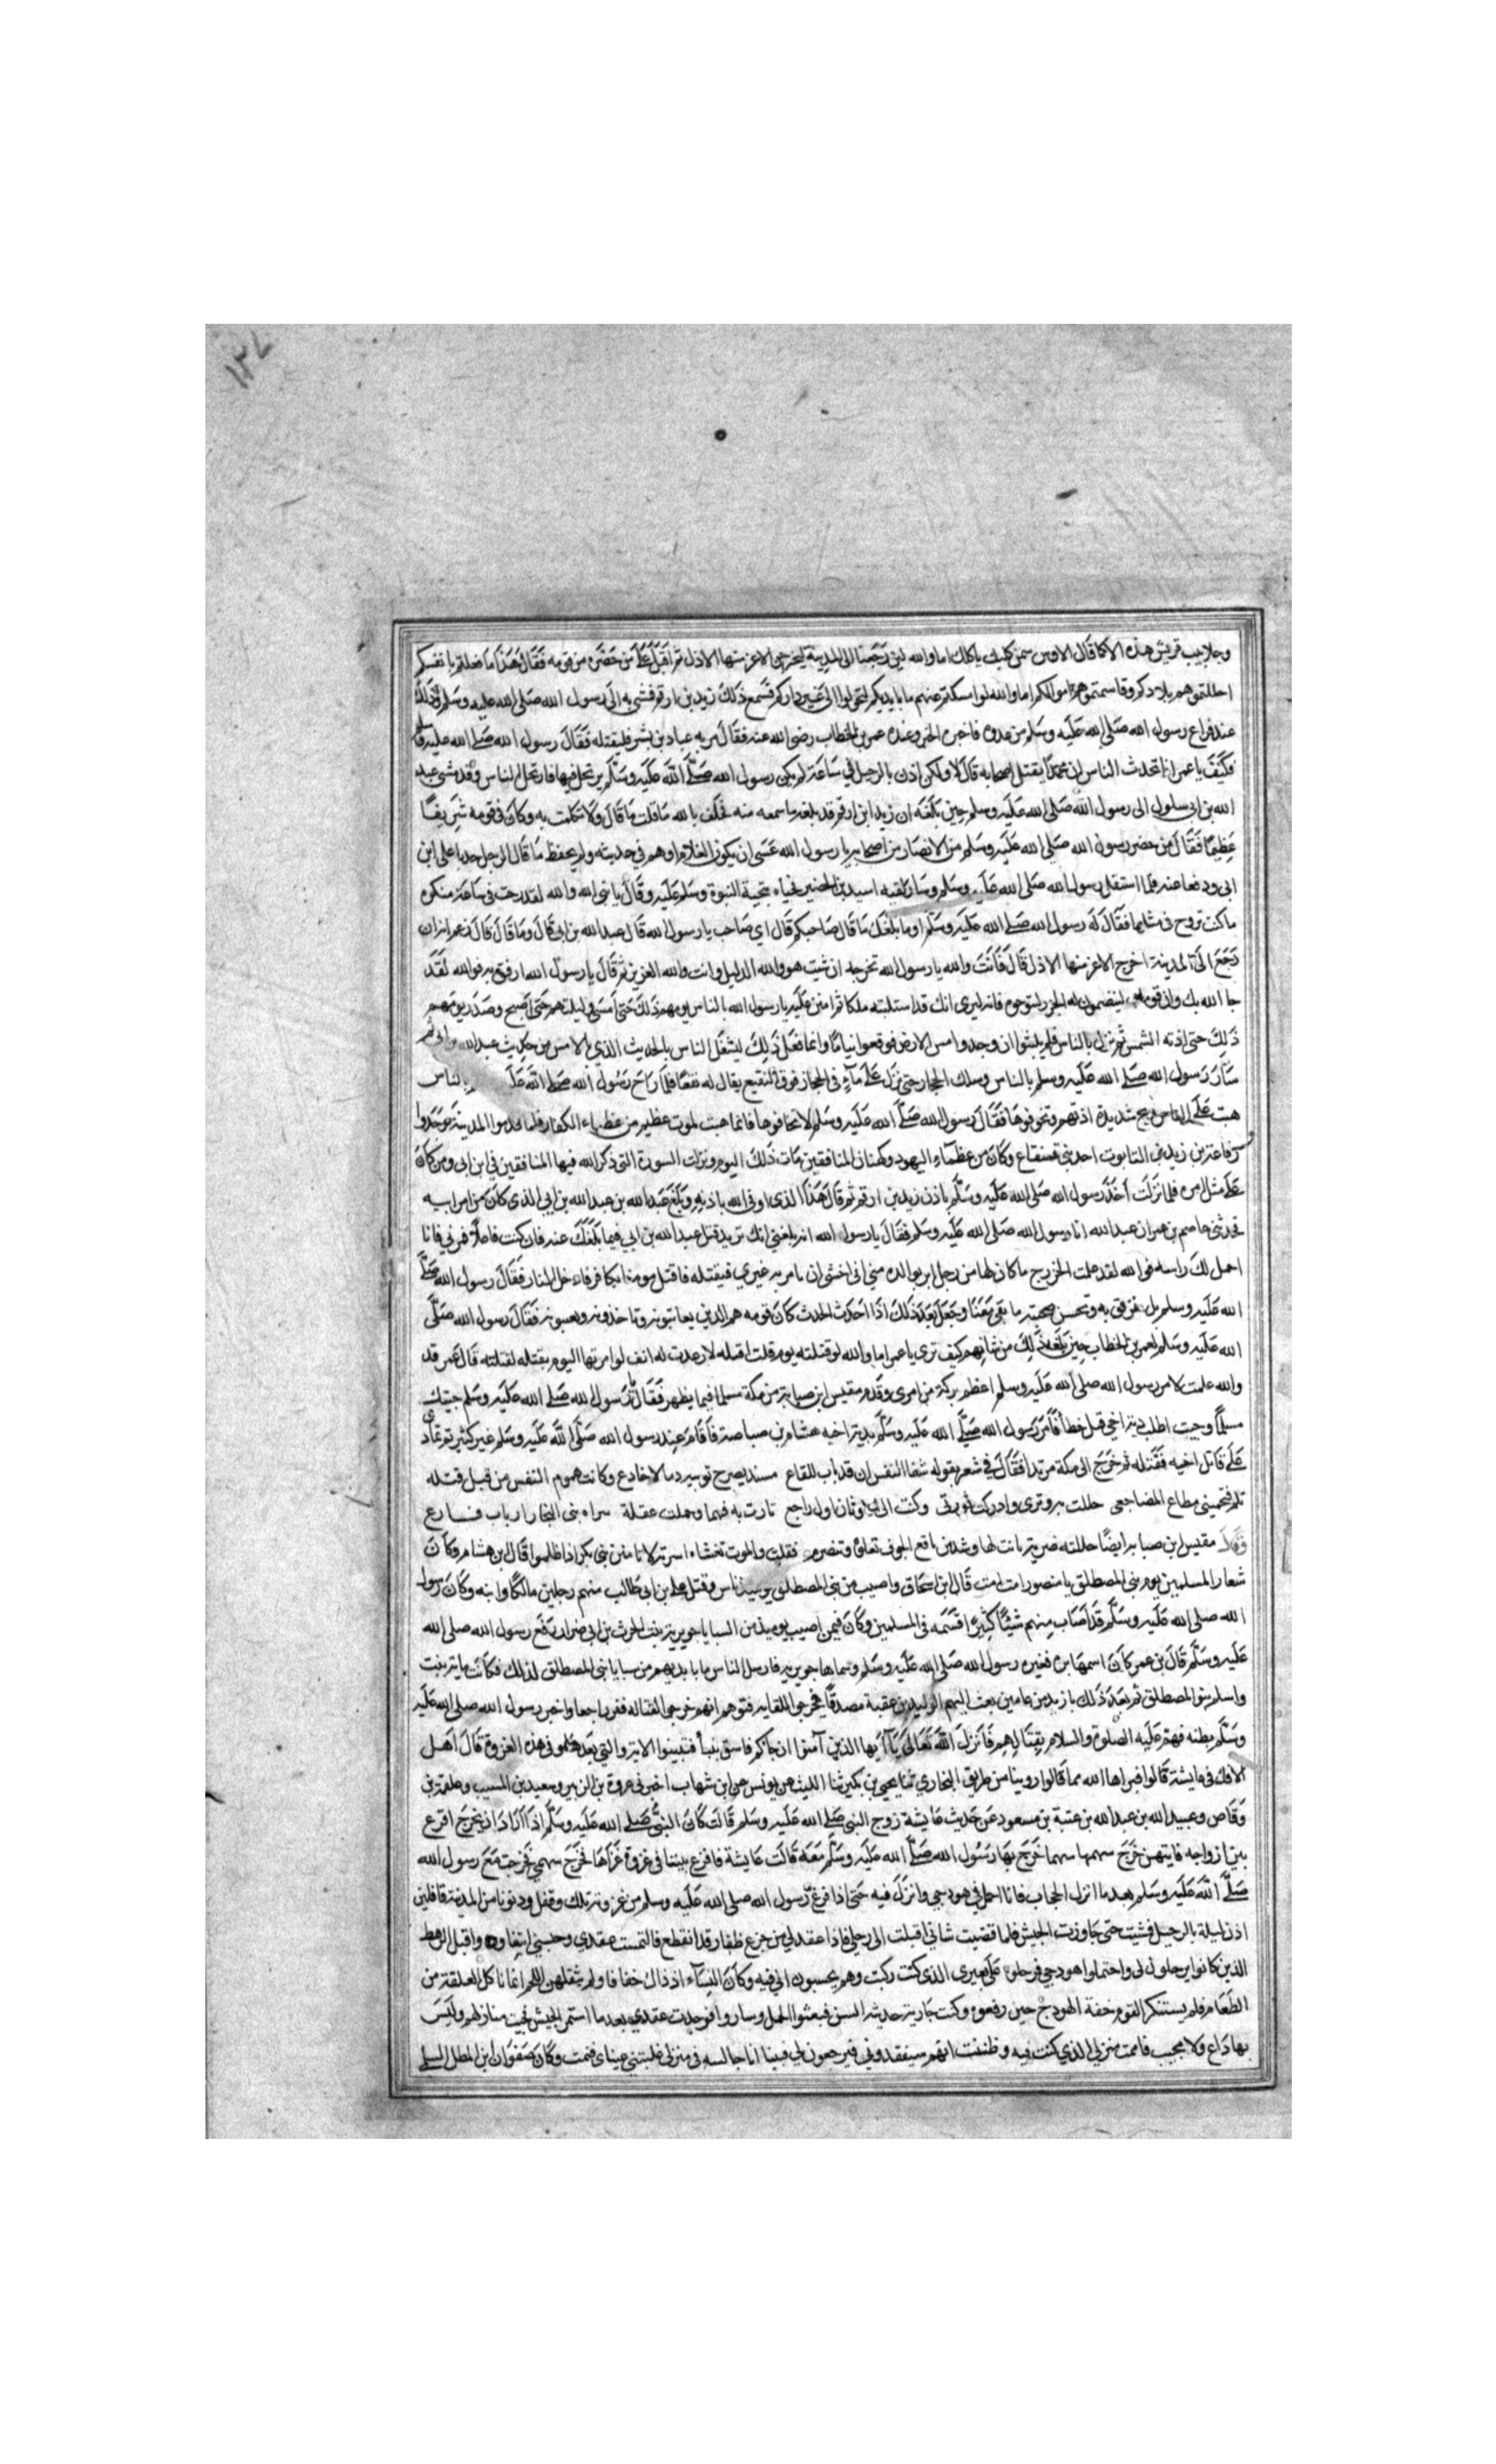 ١٣٧
وجلابيب قريش هذه الا كما قال الاوس سمن كلبك ياكلك اما والله لين رجعنا الى المدينة ليخرجن الاعز منها الاذل ثم اقبل على من حضره من قومه فقال هذا ما فعلتم بانفسكم
احللتموهم بلادكم وقاسمتموهم اموالكم اما والله لو امسكتم عنهم ما بايديكم لتحولوا الى غير داركم فسمع ذلك زيد بن ارقم فمشى به الى رسول الله صلى الله عليه وسلم وذلك
عند فراغ رسول الله صلى الله عليه وسلم من عدوه فاخبره الخبر وعنده عمر بن الخطاب رضي الله عنه فقال مر به عباد بن بشر فليقتله فقال رسول الله صلى الله عليه وسلم
فكيف يا عمر اذا تحدث الناس ان محمدا يقتل اصحابه قال لا ولكن اذن بالرحيل في ساعة لم يكن رسول الله صلى الله عليه وسلم يرتحل فيها فارتحل الناس وقد مشى عبد
الله بن ابي سلول الى رسول الله صلى الله عليه وسلم حين بلغه ان زيد ابن ارقم قد بلغه ما سمعه منه فحلف بالله ما قلت ما قال ولا تكلمت به وكان في قومه شريفا
عظيما فقال من حضر رسول الله صلى الله عليه وسلم من الانصار من اصحابه يا رسول الله عسى ان يكون الغلام اوهم في حديثه ولم يحفظ ما قال الرجل حدبا على ابن
ابي ودفعا عنه فلما استقل رسول الله صلى الله عليه وسلم وسار لقيه اسيد بن الحضير فحياه بتحية النبوة وسلم عليه وقال يا نبي الله والله لقد رحت في ساعة منكره
ما كنت تروح في مثلها فقال له رسول الله صلى الله عليه وسلم اوما بلغك ما قال صاحبكم قال اي صاحب يا رسول الله قال عبد الله بن ابي قال وما قال قال زعم انه ان
رجع الى المدينة اخرج الاعز منها الاذل قال فانت والله يا رسول الله تخرجه ان شيت هو والله الذليل وانت والله العزيز ثم قال يا رسول الله ارفق به فوالله لقد
جا الله بك وان قومه لينضمون له الخرز ليتوجوه فانه ليرى انك قد استلبته ملكا ثم امتن عليه يا رسول الله بالناس يومهم ذلك حتى امسى وليلتهم حتى اصبح وصدر يومهم
ذلك حتى اذته الشمس ثم نزل بالناس فلم يلبثوا ان وجدوا مس الارض فوقعوا نياما وانما فعل ذلك ليشغل الناس بالحديث الذي بالامس من حديث عبد الله بن ابي ثم
سار رسول الله صلى الله عليه وسلم بالناس وسلك الحجاز حتى نزل على ماء في الحجاز فوق النقيع يقال له نقعا فلما راح رسول الله صلى الله عل بالناس
هبت على الناس ريح شديدة اذتهم وتخوفوها فقال رسول الله صلى الله عليه وسلم لا تخافوها فانما هبت لموت عظيم من عظماء الكفار فلما قدموا المدينة وجدوا
رفاعة بن زيد بن التابوت احد بني قينقاع وكان من عظماء اليهود وكهفا للمنافقين مات ذلك اليوم ونزلت السورة التي ذكر الله فيها المنافقين في ابن ابي ومن كان
على مثل امره فلما نزلت اخذ رسول الله صلى الله عليه وسلم باذن زيد بن ارقم ثم قال هذا الذي اوفى الله باذنه وبلغ عبد الله بن عبد الله بن ابي الذي كان من امر ابيه
فحدثني عاصم بن عمر ان عبد الله اتا رسول الله صلى الله عليه وسلم فقال يا رسول الله انه بلغني انك تريد قتل عبد الله بن ابي فيما بلغك عنه فان كنت فاعلا فمرني فانا
احمل لك راسه فوالله لقد علمت الخزرج ما كان لها من رجل ابر بوالده مني اني اخشى ان تامر به غيري فيقتله فاقتل مومنا بكافر فادخل النار فقال رسول الله صلى
الله عليه وسلم بل نترفق به ونحسن صحبته ما بقي معنا وجعل بعد ذلك اذا احدث الحدث كان قومه هم الذين يعاتبونه وياخذونه ويعنفونه فقال رسول الله صلى
الله عليه وسلم لعمر بن الخطاب حين بلغه ذلك من شانهم كيف ترى يا عمر اما والله لو قتلته يوم قلت اقتله لارعدت له انف لو امرتها اليوم بقتله لقتلته قال عمر قد
والله علمت لامر رسول الله صلى الله عليه وسلم اعظم بركة من امري وقدم مقيس ابن صبابة من مكة مسلما فيما يظهر فقال يا رسول الله صلى الله عليه وسلم جيتك
مسلما وجيت اطلب دية اخي قتل خطأ فامر رسول الله صلى الله عليه وسلم بدية اخيه هشام بن صبابة فاقام عند رسول الله صلى الله عليه وسلم غير كثير ثم عدا
على قاتل اخيه فقتله ثم خرج الى مكة مرتدا فقال في شعر يقوله شفا النفس ان قد بات بالقاع مسندا يضرج ثوبيه دما الاخادع وكانت هموم النفس من قبل قتله
تلم فتحميني وطاء المضاجعي حللت به وتري وادركت ثورتي وكنت الى الاوثان اول راجع ثارت به فهرا وحملت عقله سراة بني النجار ارباب فارع
وقال مقيس بن صبابه ايضا جللته ضربة بانت لها وشل من ناقع الجوف تعلوه وتنصرم فقلت والموت تغشاه اسرته لا تامنن بني بكر اذا ظلموا قال ابن هشام وكان
شعار المسلمين يوم بني المصطلق يا منصور امت امت قال ابن اسحاق واصيب من بني المصطلق يوميذ ناس وقتل علي بن ابي طالب منهم رجلين مالكا وابنه وكان رسول
الله صلى الله عليه وسلم قد اصاب منهم شيئا كثيرا فقسمه في المسلمين وكان فيمن اصيب يوميذ من السبايا جويرية بنت الحرث بن ابي ضرار رفع رسول الله صلى الله
عليه وسلم قال بن عمر كان اسمها بره فغيره رسول الله صلى الله عليه وسلم وسماها جويرية فارسل الناس ما بايديهم من سبايا بني المصطلق لذلك فكانت عايشة بنت
واسلم بنو المصطلق ثم بعد ذلك بازيد من عامين بعث اليهم الوليد بن عقبة مصدقا فخرجوا للقايه فتوهم انهم خرجوا لقتاله ففر راجعا واخبر رسول الله صلى الله عليه
وسلم بظنه فهم عليه الصلوة والسلام بقتالهم فانزل الله تعالى يا ايها الذين آمنوا ان جاكم فاسق بنبأ فتبينوا الاية والتي بعدها وفي هذه الغزوة قال اهل
الافك في عايشة ما قالوا فبراها الله مما قالوا روينا من طريق البخاري ثنا يحيى بن بكير ثنا الليث عن يونس عن ابن شهاب اخبرني عروة بن الزبير وسعيد بن المسيب وعلقمة بن
وقاص وعبيد الله بن عبد الله بن عتبة بن مسعود عن حديث عايشة زوج النبي صلى الله عليه وسلم قالت كان النبي صلى الله عليه وسلم اذا اراد ان يخرج اقرع
بين ازواجه فايتهن خرج سهمها خرج بها رسول الله صلى الله عليه وسلم معه قالت عايشة فاقرع بيننا في غزوة غزاها فخرج سهمي فخرجت مع رسول الله
صلى الله عليه وسلم بعد ما انزل الحجاب فانا احمل في هودجي وانزل فيه حتى اذا فرغ رسول الله صلى الله عليه وسلم من غزوته تلك وقفل ودنونا من المدينة قافلين
اذن ليلة بالرحيل فمشيت حتى جاوزت الجيش فلما قضيت شاني اقبلت الى رحلي فاذا عقد لي من جزع ظفار قد انقطع فالتمست عقدي وحبسني ابتغاوه واقبل الرهط
الذين كانوا يرحلون لي واحتملوا هودجي فرحلوه على بعيري الذي كنت ركبت وهم يحسبون اني فيه وكان النسآء اذ ذاك خفافا ولم يثقلهن اللحم انما ناكل العلقة من
الطعام فلم يستنكر القوم خفة الهودج حين رفعوه وكنت جارية حديثة السن فبعثوا الجمل وساروا فوجدت عقدي بعد ما استمر الجيش فجيت منازلهم وليس
بها داع ولا مجيب فاممت منزلي الذي كنت فيه وظننت انهم سيفقدوني فيرجعون لي فبينا انا جالسه في منزلي غلبتني عيناي فنمت وكان صفوان ابن المعطل السلمي